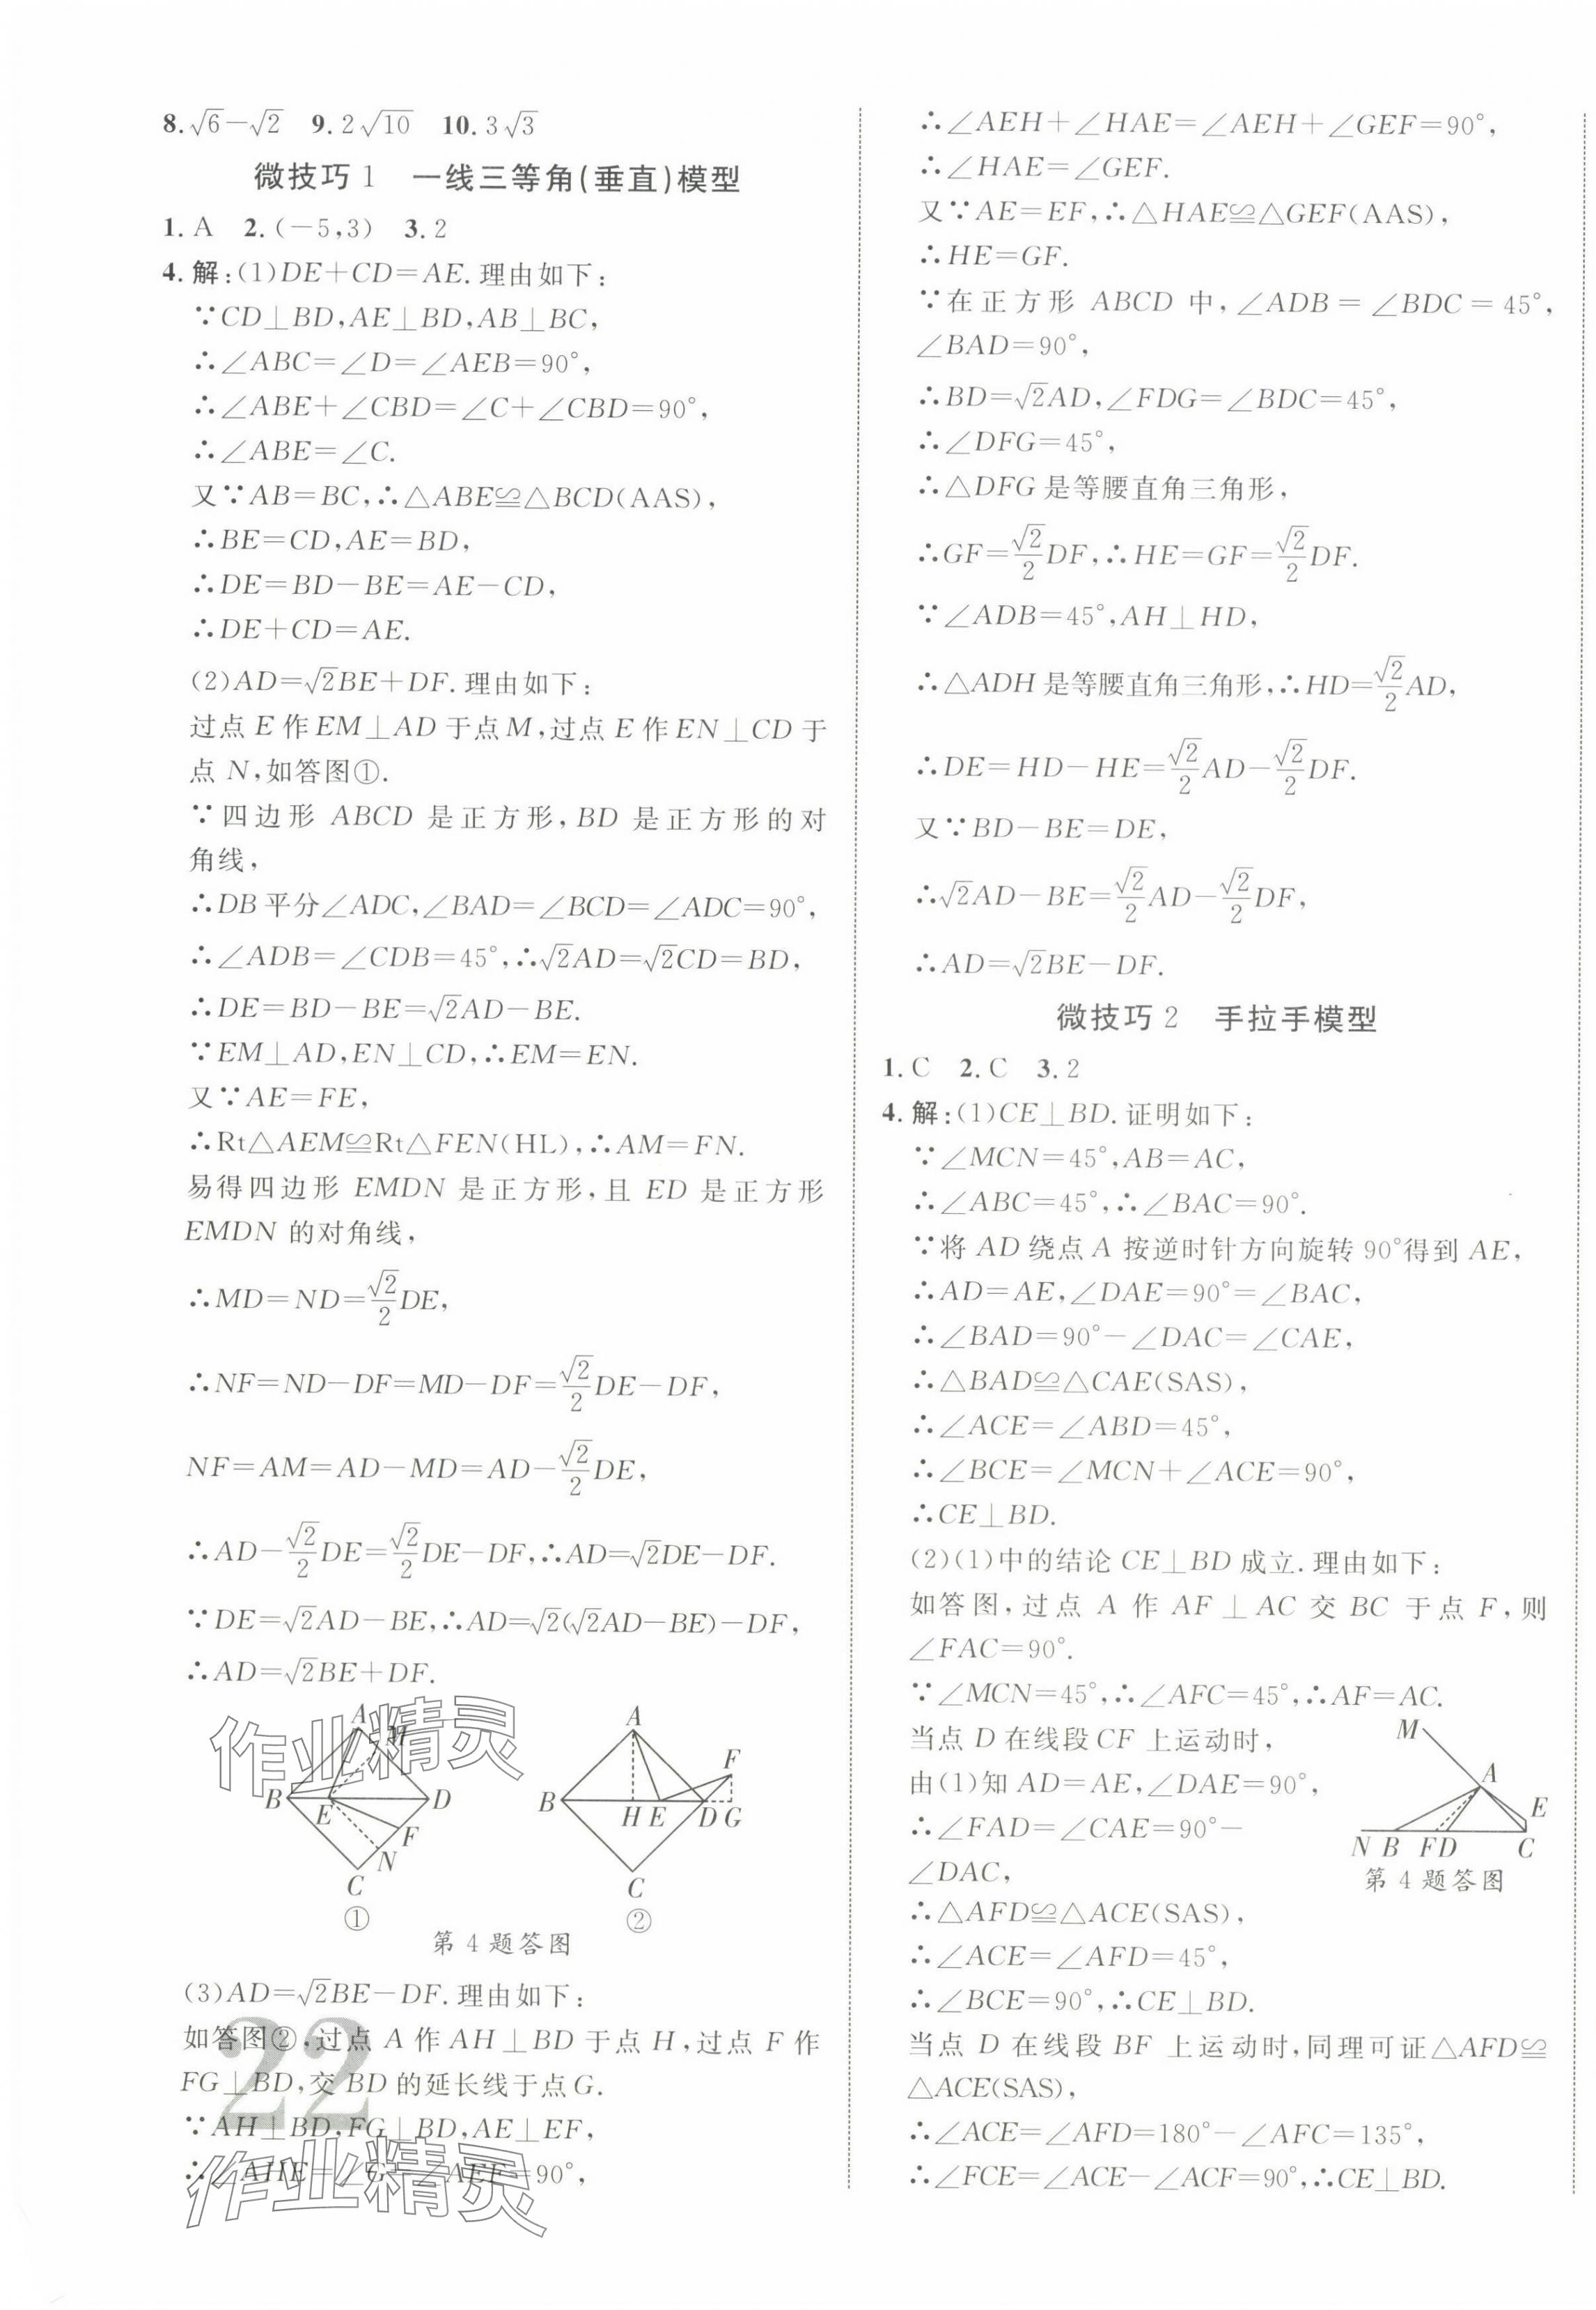 8. √6－√2  9. 2√10  10. 3√3
微技巧1  一线三等角(垂直)模型
1. A  2. (－5,3)  3. 2
4. 解:(1)DE＋CD＝AE. 理由如下:
∵CD⊥BD,AE⊥BD,AB⊥BC,
∴∠ABC＝∠D＝∠AEB＝90°,
∴∠ABE＋∠CBD＝∠C＋∠CBD＝90°,
∴∠ABE＝∠C.
又∵AB＝BC,∴△ABE≌△BCD(AAS),
∴BE＝CD,AE＝BD,
∴DE＝BD－BE＝AE－CD,
∴DE＋CD＝AE.
(2)AD＝√2BE＋DF. 理由如下:
过点E作EM⊥AD于点M,过点E作EN⊥CD于
点N,如答图①.
∵四边形ABCD是正方形,BD是正方形的对
角线,
∴DB平分∠ADC,∠BAD＝∠BCD＝∠ADC＝90°,
∴∠ADB＝∠CDB＝45°,∴√2AD＝√2CD＝BD,
∴DE＝BD－BE＝√2AD－BE.
∵EM⊥AD,EN⊥CD,∴EM＝EN.
又∵AE＝FE,
∴Rt△AEM≌Rt△FEN(HL),∴AM＝FN.
易得四边形EMDN是正方形,且ED是正方形
EMDN的对角线,
∴MD＝ND＝√2/2DE,
∴NF＝ND－DF＝MD－DF＝√2/2DE－DF,
NF＝AM＝AD－MD＝AD－√2/2DE,
∴AD－√2/2DE＝√2/2DE－DF,∴AD＝√2DE－DF.
∵DE＝√2AD－BE,∴AD＝√2(√2AD－BE)－DF,
∴AD＝√2BE＋DF.
作业精灵
A M B E D F N C ①
A F B H E D G C ②
第4题答图
(3)AD＝√2BE－DF. 理由如下:
如答图②,过点A作AH⊥BD于点H,过点F作
FG⊥BD,交BD的延长线于点G.
∵AH⊥BD,FG⊥BD,AE⊥EF,
∴∠AHE＝∠G＝∠AEF＝90°,
22
作业精灵
∴∠AEH＋∠HAE＝∠AEH＋∠GEF＝90°,
∴∠HAE＝∠GEF.
又∵AE＝EF,∴△HAE≌△GEF(AAS),
∴HE＝GF.
∵在正方形ABCD中,∠ADB＝∠BDC＝45°,
∠BAD＝90°,
∴BD＝√2AD,∠FDG＝∠BDC＝45°,
∴∠DFG＝45°,
∴△DFG是等腰直角三角形,
∴GF＝√2/2DF,∴HE＝GF＝√2/2DF.
∵∠ADB＝45°,AH⊥HD,
∴△ADH是等腰直角三角形,∴HD＝√2/2AD,
∴DE＝HD－HE＝√2/2AD－√2/2DF.
又∵BD－BE＝DE,
∴√2AD－BE＝√2/2AD－√2/2DF,
∴AD＝√2BE－DF.
微技巧2  手拉手模型
1. C  2. C  3. 2
4. 解:(1)CE⊥BD. 证明如下:
∵∠MCN＝45°,AB＝AC,
∴∠ABC＝45°,∴∠BAC＝90°.
∵将AD绕点A按逆时针方向旋转90°得到AE,
∴AD＝AE,∠DAE＝90°＝∠BAC,
∴∠BAD＝90°－∠DAC＝∠CAE,
∴△BAD≌△CAE(SAS),
∴∠ACE＝∠ABD＝45°,
∴∠BCE＝∠MCN＋∠ACE＝90°,
∴CE⊥BD.
(2)(1)中的结论CE⊥BD成立. 理由如下:
如答图,过点A作AF⊥AC交BC于点F,则
∠FAC＝90°.
∵∠MCN＝45°,∴∠AFC＝45°,∴AF＝AC.
当点D在线段CF上运动时,
由(1)知AD＝AE,∠DAE＝90°,
∴∠FAD＝∠CAE＝90°－
∠DAC,
∴△AFD≌△ACE(SAS),
∴∠ACE＝∠AFD＝45°,
∴∠BCE＝90°,∴CE⊥BD.
M A E N B F D C
第4题答图
当点D在线段BF上运动时,同理可证△AFD≌
△ACE(SAS),
∴∠ACE＝∠AFD＝180°－∠AFC＝135°,
∴∠FCE＝∠ACE－∠ACF＝90°,∴CE⊥BD.